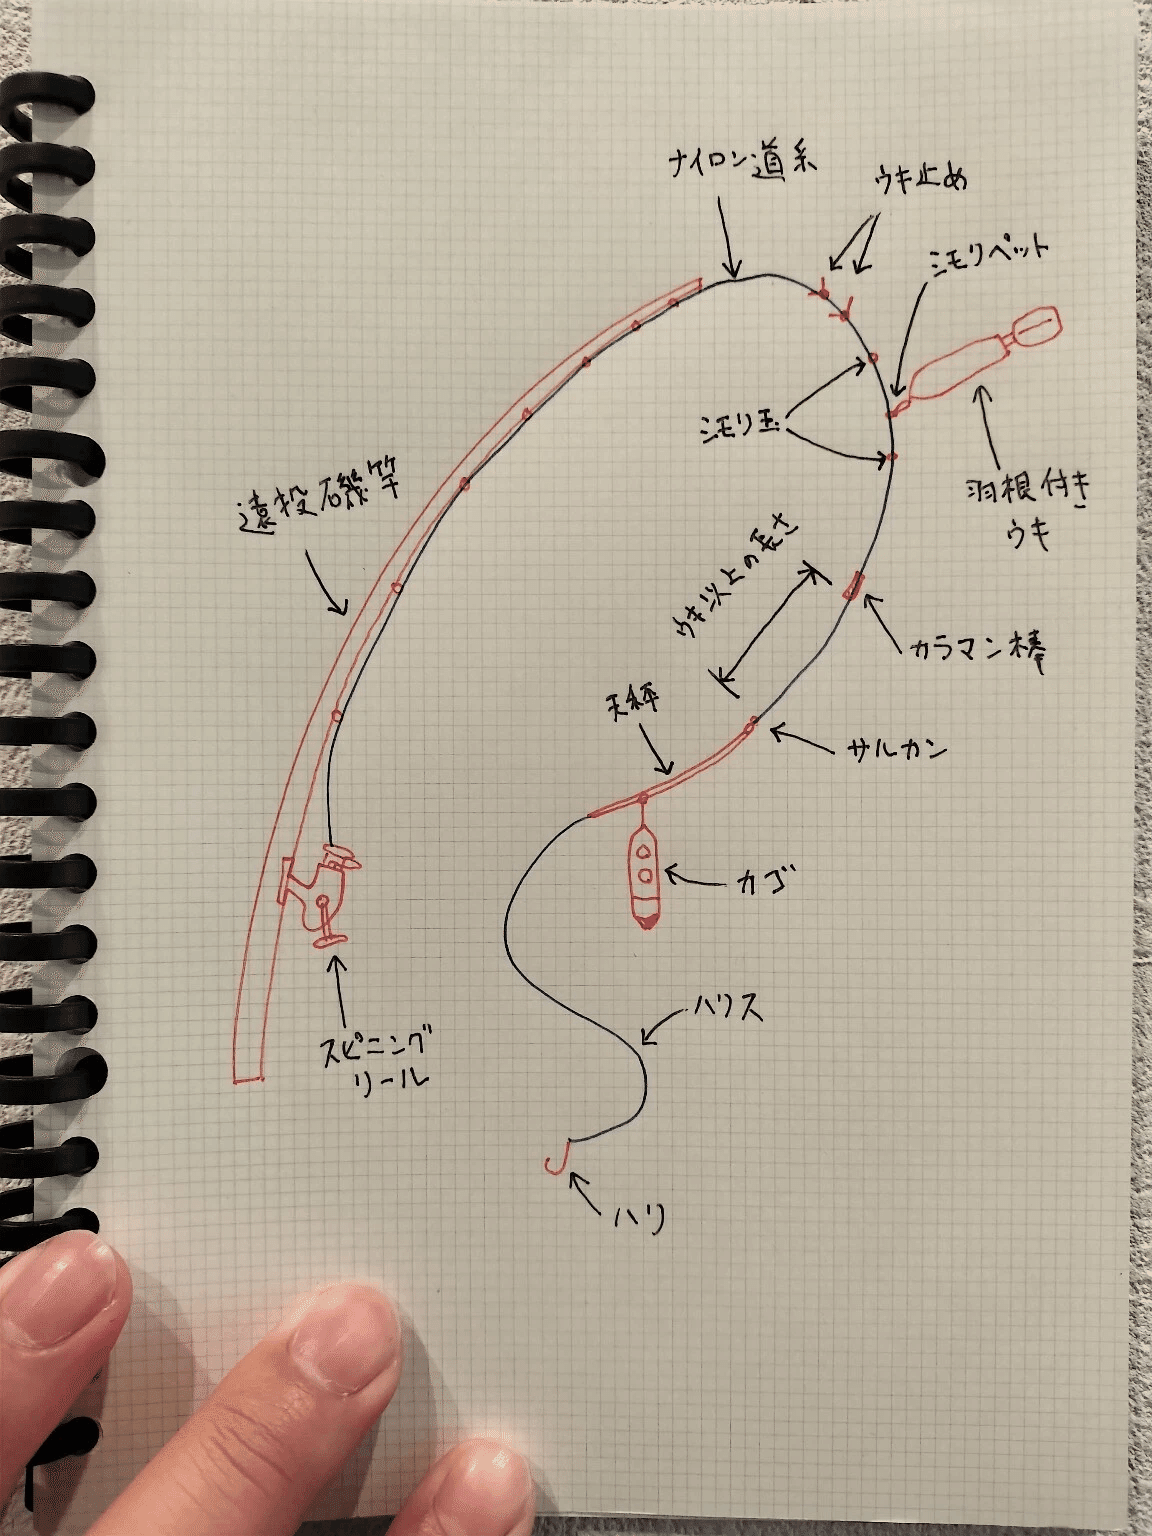 ナイロン道糸
ウキ止め
シモリペット
シモリ玉
羽根付き
ウキ
遠投磯竿
ウキ以上の長さ
カラマン棒
天秤
サルカン
カゴ
ハリス
スピニング
リール
ハリ